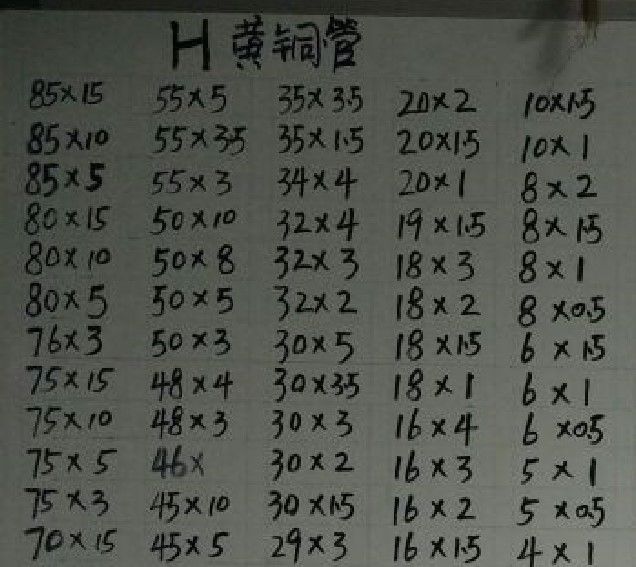 H 黄铜管
85×15 55×5 35×3.5 20×2 10×1.5
85×10 55×3.5 35×1.5 20×1.5 10×1
85×5 55×3 34×4 20×1 8×2
80×15 50×10 32×4 19×1.5 8×1.5
80×10 50×8 32×3 18×3 8×1
80×5 50×5 32×2 18×2 8×0.5
76×3 50×3 30×5 18×1.5 6×1.5
75×15 48×4 30×3.5 18×1 6×1
75×10 48×3 30×3 16×4 6×0.5
75×5 46× 30×2 16×3 5×1
75×3 45×10 30×1.5 16×2 5×0.5
70×15 45×5 29×3 16×1.5 4×1